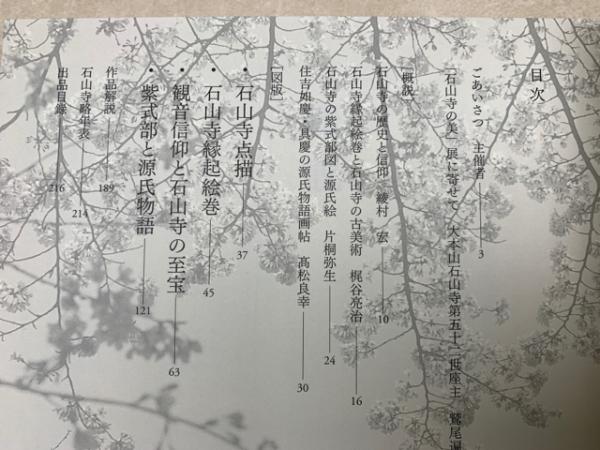 目次
ごあいさつ 主催者 3
「石山寺の美」展に寄せて 大本山石山寺第五十二世座主 鷲尾遍
[概説]
石山寺の歴史と信仰 綾村 宏 10
石山寺縁起絵巻と石山寺の古美術 梶谷亮治 16
石山寺の紫式部図と源氏絵 片桐弥生 24
住吉如慶・具慶の源氏物語画帖 髙松良幸 30
[図版]
・石山寺点描 37
・石山寺縁起絵巻 45
・観音信仰と石山寺の至宝 63
・紫式部と源氏物語 121
作品解説 189
石山寺略年表 214
出品目録 216